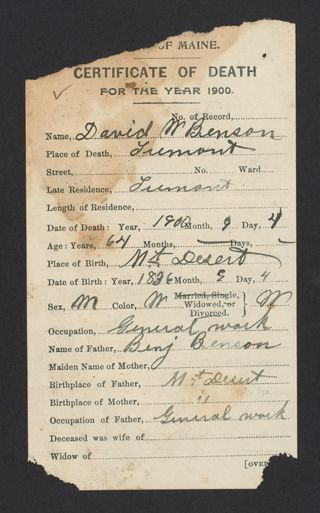 OF MAINE.
CERTIFICATE OF DEATH
FOR THE YEAR 1900.
No. of Record,
Name, David W Benson
Place of Death, Tremont
Street, No. Ward
Late Residence, Tremont
Length of Residence,
Date of Death: Year, 1900 Month, 9 Day, 4
Age: Years, 64 Months, — Days, -
Place of Birth, Mt. Desert
Date of Birth: Year, 1836 Month, 9 Day, 4
Sex, M Color, W Married, Single, Widowed, or Divorced. } W
Occupation, General work
Name of Father, Benj Benson
Maiden Name of Mother,
Birthplace of Father, Mt. Desert
Birthplace of Mother, "
Occupation of Father, General work
Deceased was wife of
Widow of
[OVER